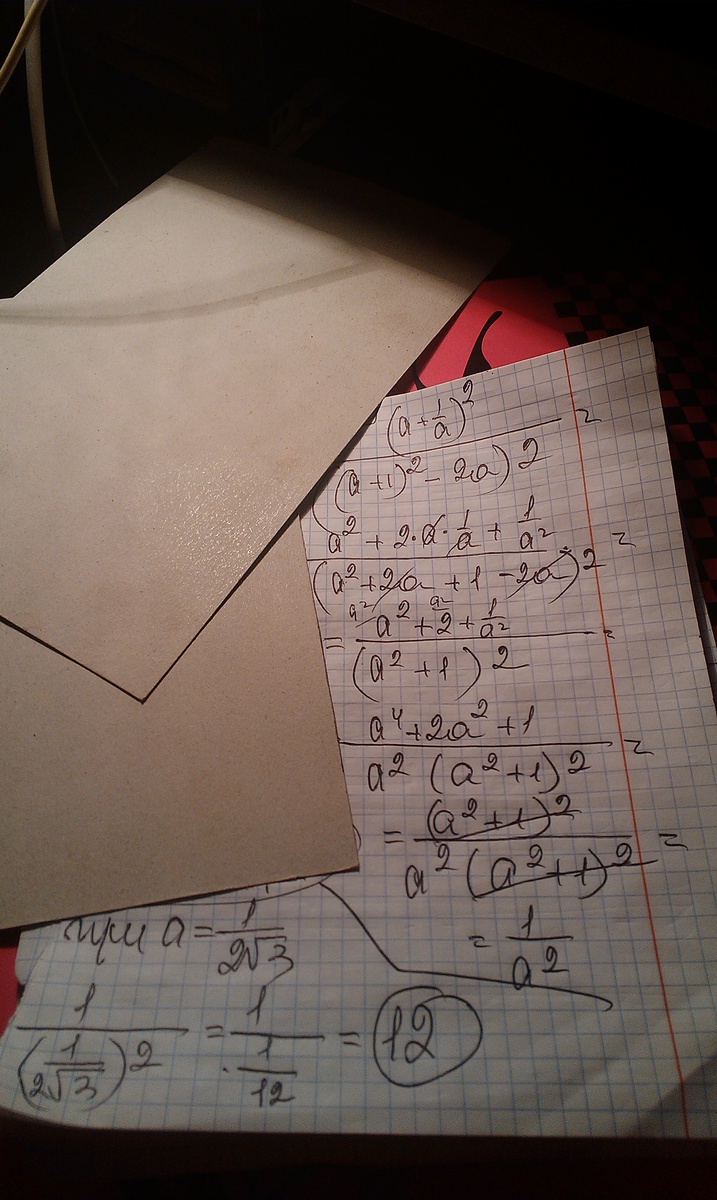 (a + 1/a)^2 / ((a+1)^2 - 2a)^2 =
(a^2 + 2·a·1/a + 1/a^2) / (a^2 + 2a + 1 - 2a)^2 =
= (a^2 + 2 + 1/a^2) / (a^2 + 1)^2 =
(a^4 + 2a^2 + 1) / (a^2 (a^2+1)^2) =
= (a^2+1)^2 / (a^2 (a^2+1)^2) =
= 1/a^2
при a = 1/(2√3)
1/(1/(2√3))^2 = 1/(1/12) = 12